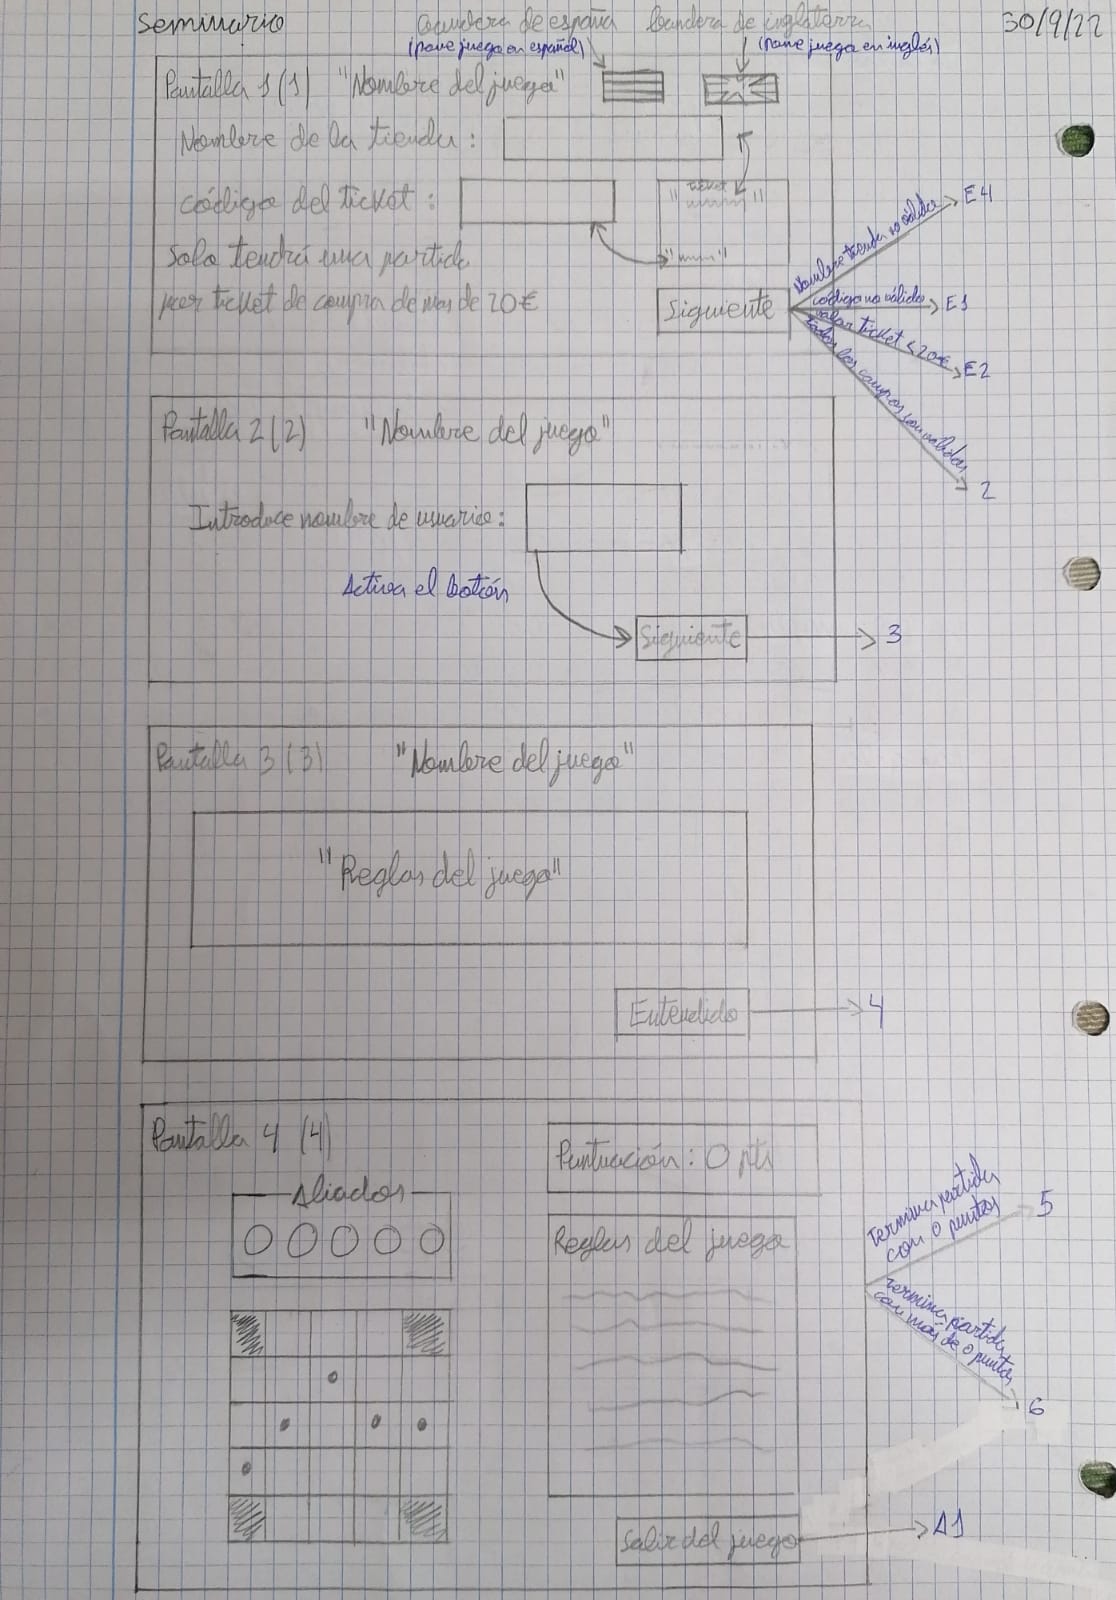 Seminario
bandera de españa
bandera de inglaterra
30/9/22
(pone juego en español)
(pone juego en inglés)
Pantalla 1 (1)
"Nombre del juego"
Nombre de la tienda:
código del ticket:
"ticket"
Solo tendrá una partida
por ticket de compra de más de 20€
Siguiente
Nombre tienda no válido
E4
código no válido
E1
valor ticket < 20€
E2
todos los campos son válidos
2
Pantalla 2 (2)
"Nombre del juego"
Introduce nombre de usuario:
Activa el botón
Siguiente
3
Pantalla 3 (3)
"Nombre del juego"
"Reglas del juego"
Entendido
4
Pantalla 4 (4)
Puntuación: 0 pts
Aliados
Reglas del juego
Termina partida
con 0 puntos
5
termina partida
con más de 0 puntos
6
Salir del juego
A1